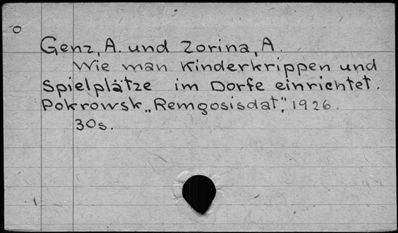 Genz, A. und Zorina, A.
Wie man Kinderkrippen und
Spielplätze im Dorfe einrichtet.
Pokrowsk „Remgosisdat", 1926.
30s.